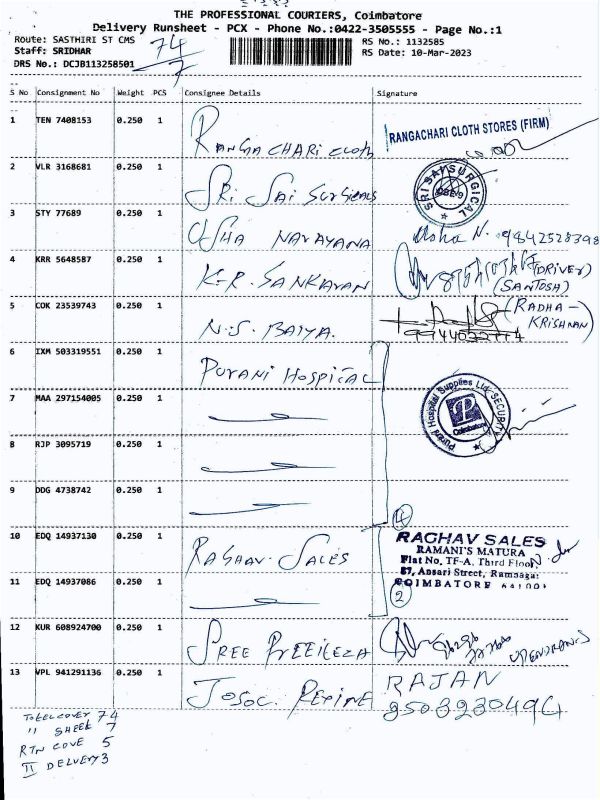 THE PROFESSIONAL COURIERS, Coimbatore
Delivery Runsheet - PCX - Phone No.:0422-3505555 - Page No.:1
Route: SASTHIRI ST CMS
RS No.: 1132585
Staff: SRIDHAR
RS Date: 10-Mar-2023
DRS No.: DCJB113258501
74
7
S No Consignment No Weight PCS Consignee Details Signature
1 TEN 7408153 0.250 1 RANGACHARI CLOTH RANGACHARI CLOTH STORES (FIRM)
2 VLR 3168681 0.250 1 SRI SAI SURGICALS SRI SAI SURGICAL
3 STY 77689 0.250 1 USHA NARAYANA Usha N. 9842528398
4 KRR 5648587 0.250 1 K.R. SANKARAN (DRIVER)
(SANTOSH)
5 COK 23539743 0.250 1 N.S. BAIYA. (RADHA-
KRISHNAN)
6 IXM 503319551 0.250 1 PURANI HOSPITAL
7 MAA 297154005 0.250 1 Purani Hospital Supplies Ltd SECURITY
Coimbatore
8 RJP 3095719 0.250 1
9 DDG 4738742 0.250 1
4
10 EDQ 14937130 0.250 1 RAGHAV SALES RAGHAV SALES
RAMANI'S MATURA
Flat No. TF-A, Third Floor,
57, Ansari Street, Ramnagar
COIMBATORE 641001
11 EDQ 14937086 0.250 1 2
12 KUR 608924700 0.250 1 SREE
13 VPL 941291136 0.250 1 RAJAN
TOTEL COVER 74
" SHEET 7
RTN COVE 5
II DELVERY 3